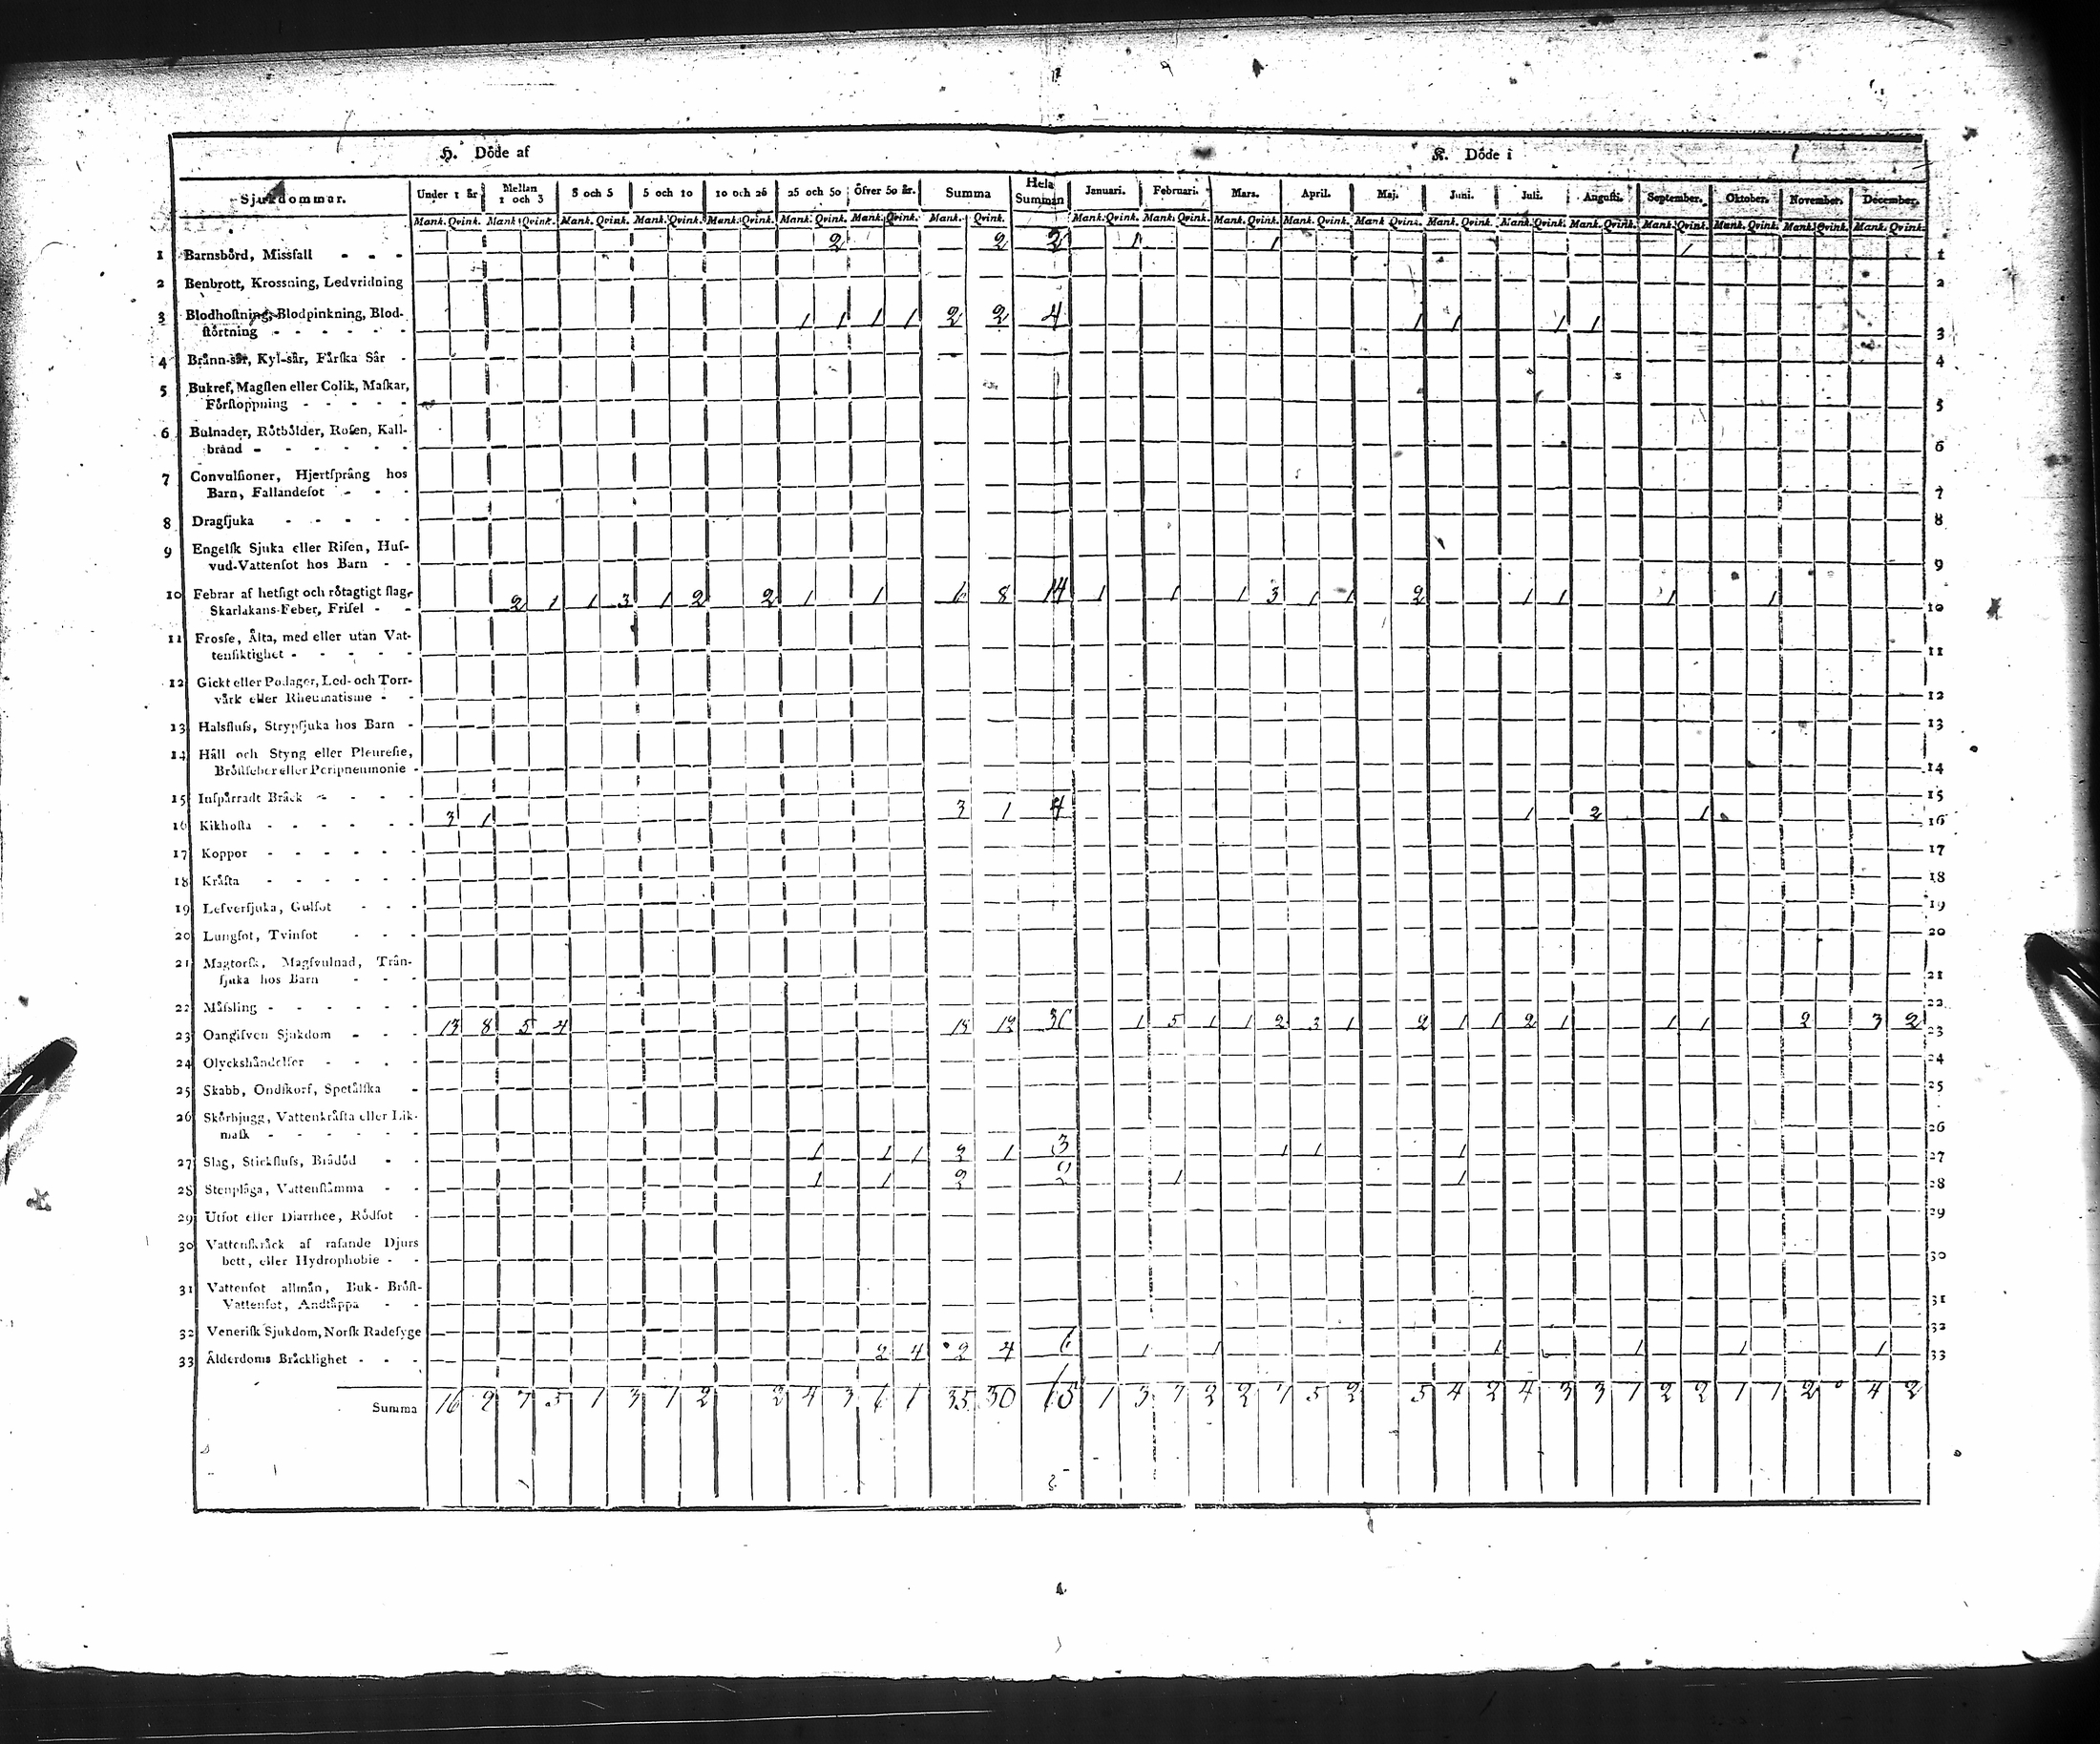 H. Döde af K. Döde i
Sjukdommar. Under 1 år Mellan 1 och 3 3 och 5 5 och 10 10 och 26 25 och 50 Öfver 50 år. Summa Hela Summan Januari. Februari. Mars. April. Maj. Juni. Juli. Augusti. September. Oktober. November. December.
Mank. Qvink. Mank. Qvink. Mank. Qvink. Mank. Qvink. Mank. Qvink. Mank. Qvink. Mank. Qvink. Mank. Qvink. Mank. Qvink. Mank. Qvink. Mank. Qvink. Mank. Qvink. Mank. Qvink. Mank. Qvink. Mank. Qvink. Mank. Qvink. Mank. Qvink. Mank. Qvink. Mank. Qvink. Mank. Qvink.
1 Barnsbörd, Missfall - - - 2 2 1 1 1 1
2 Benbrott, Krossning, Ledvridning 2
3 Blodhoſtning, Blodpinkning, Blod-
ſtörtning - - - - - 1 1 1 1 2 2 4 1 1 1 1 3
4 Bränn-sår, Kyl-sår, Färſka Sår - 4
5 Bukref, Magſlen eller Colik, Maſkar,
Förſtoppning - - - - - 5
6 Bulnader, Rötbölder, Roſen, Kall-
brand - - - - - - 6
7 Convulſioner, Hjertſprång hos
Barn, Fallandeſot - - - 7
8 Dragſjuka - - - - - 8
9 Engelſk Sjuka eller Riſen, Huf-
vud-Vattenſot hos Barn - - 9
10 Febrar af hetſigt och rötagtigt ſlag,
Skarlakans-Feber, Friſel - - 2 1 1 3 1 2 2 1 1 6 8 14 1 1 1 3 1 1 2 1 1 1 1 10
11 Frosſe, Älta, med eller utan Vat-
tenſiktighet - - - - - 11
12 Gickt eller Podager, Led- och Torr-
värk eller Rheumatisme - - 12
13 Halsfluſs, Strypſjuka hos Barn - 13
14 Håll och Styng eller Pleureſie,
Bröſtfeber eller Peripneumonie - 14
15 Inſpärradt Bråck - - - - 15
16 Kikhoſta - - - - - - 3 1 3 1 4 1 2 1 16
17 Koppor - - - - - - 17
18 Kräfta - - - - - - 18
19 Lefverſjuka, Gulſot - - - 19
20 Lungſot, Tvinſot - - - 20
21 Magtorſk, Magſvulnad, Trån-
ſjuka hos Barn - - - 21
22 Mäſsling - - - - - - 22
23 Oangifven Sjukdom - - - 13 8 5 4 18 12 30 1 5 1 1 2 3 1 2 1 1 2 1 1 1 2 3 2 23
24 Olyckshändelſer - - - 24
25 Skabb, Ondſkorf, Spetälſka - 25
26 Skörbjugg, Vattenkräfta eller Lik-
maſk - - - - - - 26
27 Slag, Stickfluſs, Brådöd - - 1 1 1 2 1 3 1 1 1 27
28 Stenplåga, Vattenſtämma - - 1 1 2 2 1 1 28
29 Utſot eller Diarrhee, Rödſot - 29
30 Vattenſkräck af raſande Djurs
bett, eller Hydrophobie - - 30
31 Vattenſot allmän, Buk- Bröſt-
Vattenſot, Andtäppa - - 31
32 Veneriſk Sjukdom, Norſk Radeſyge 32
33 Ålderdoms Bräcklighet - - - 2 4 2 4 6 1 1 1 1 1 1 33
Summa 16 9 7 5 1 3 1 2 2 4 3 6 35 30 65 1 3 7 2 2 7 5 2 5 4 2 4 3 3 1 2 2 1 1 2 0 4 2